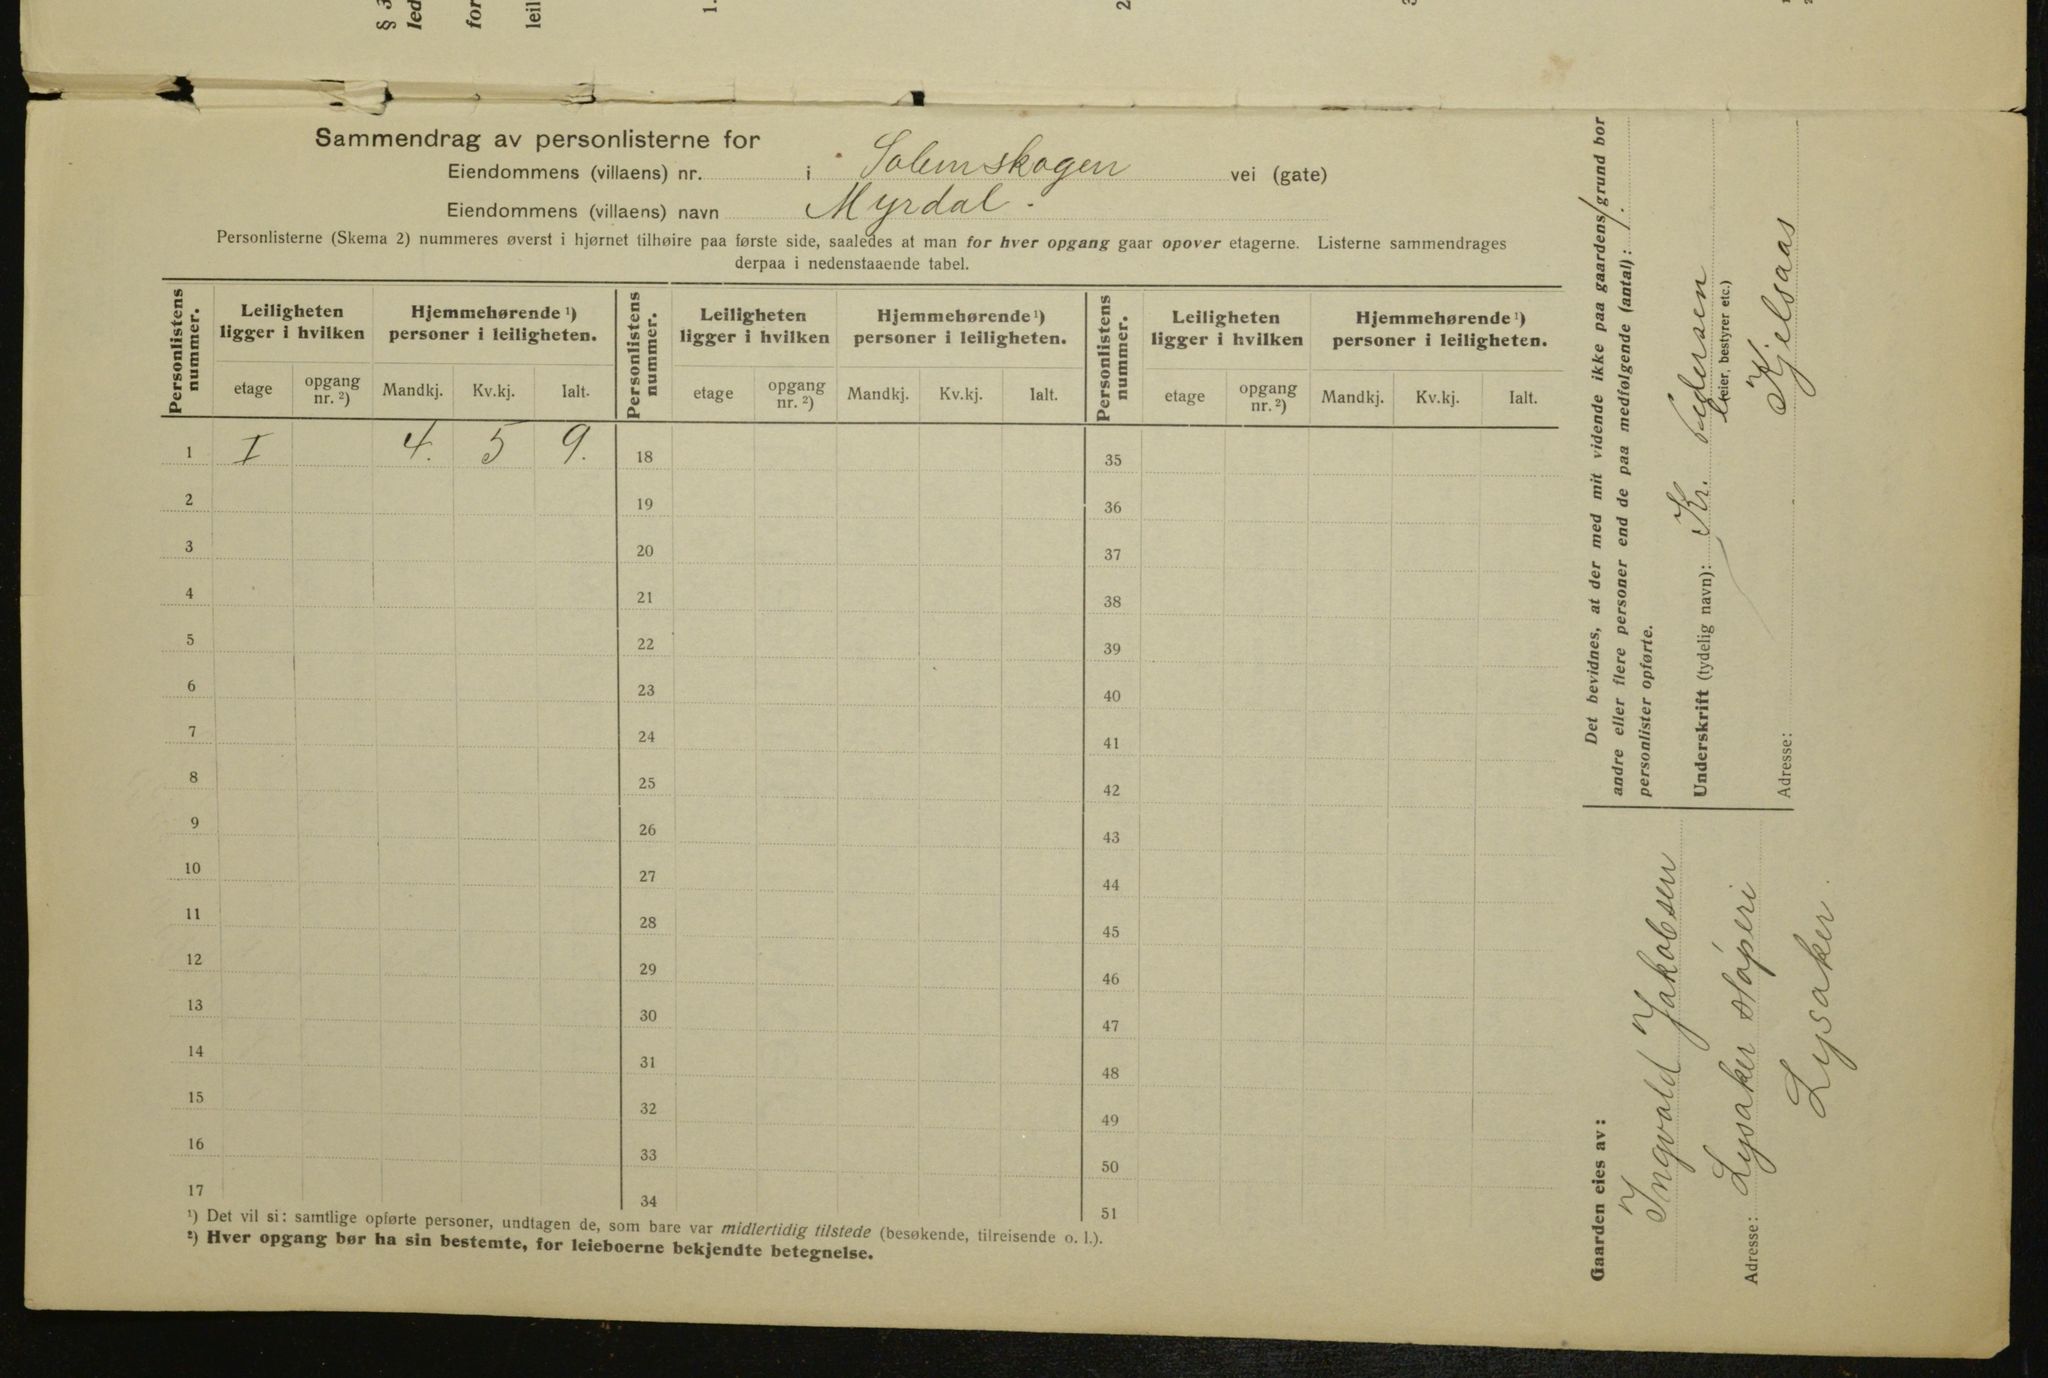 § 3
led
for
leil
1.
2
3
Sammendrag av personlisterne for
Eiendommens (villaens) nr. i Solemskogen vei (gate)
Eiendommens (villaens) navn Myrdal.
Personlisterne (Skema 2) nummeres øverst i hjørnet tilhøire paa første side, saaledes at man for hver opgang gaar opover etagerne. Listerne sammendrages
derpaa i nedenstaaende tabel.
Personlistens nummer. Leiligheten ligger i hvilken Hjemmehørende ¹) personer i leiligheten. Personlistens nummer. Leiligheten ligger i hvilken Hjemmehørende ¹) personer i leiligheten. Personlistens nummer. Leiligheten ligger i hvilken Hjemmehørende ¹) personer i leiligheten.
etage opgang nr. ²) Mandkj. Kv.kj. Ialt. etage opgang nr. ²) Mandkj. Kv.kj. Ialt. etage opgang nr. ²) Mandkj. Kv.kj. Ialt.
1 I 4. 5 9. 18 35
2 19 36
3 20 37
4 21 38
5 22 39
6 23 40
7 24 41
8 25 42
9 26 43
10 27 44
11 28 45
12 29 46
13 30 47
14 31 48
15 32 49
16 33 50
17 34 51
¹) Det vil si: samtlige opførte personer, undtagen de, som bare var midlertidig tilstede (besøkende, tilreisende o. l.).
²) Hver opgang bør ha sin bestemte, for leieboerne bekjendte betegnelse.
Det bevidnes, at der med mit vidende ikke paa gaardens/grund bor
andre eller flere personer end de paa medfølgende (antal): 1.
personlister opførte.
Underskrift (tydelig navn): Kr. Pedersen
(eier, bestyrer etc.)
Adresse: Kjelsaas
Gaarden eies av:
Ingvald Jakobsen
Adresse: Lysaker sløperi
Lysaker.